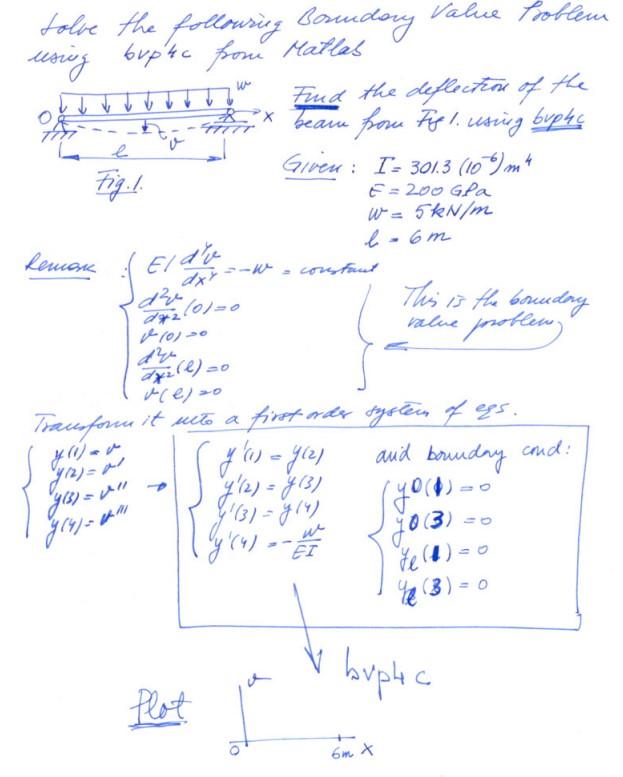 Solve the following Boundary Value Problem
using bvp4c from Matlab
w
O
x
v
l
Fig. 1.
Find the deflection of the
beam from Fig 1. using bvp4c
Given : I = 301.3 (10⁻⁶) m⁴
E = 200 GPa
w = 5 kN/m
l = 6 m
Remark : EI d⁴v/dx⁴ = -w = constant
d²v/dx² (0) = 0
v(0) = 0
d²v/dx² (l) = 0
v(l) = 0
This is the boundary
value problem
Transform it into a first order system of eqs.
y(1) = v
y(2) = v'
y(3) = v''
y(4) = v'''
y'(1) = y(2)
y'(2) = y(3)
y'(3) = y(4)
y'(4) = -w/EI
and boundary cond:
y0(1) = 0
y0(3) = 0
yl(1) = 0
yl(3) = 0
bvp4c
Plot
v
0 6m x